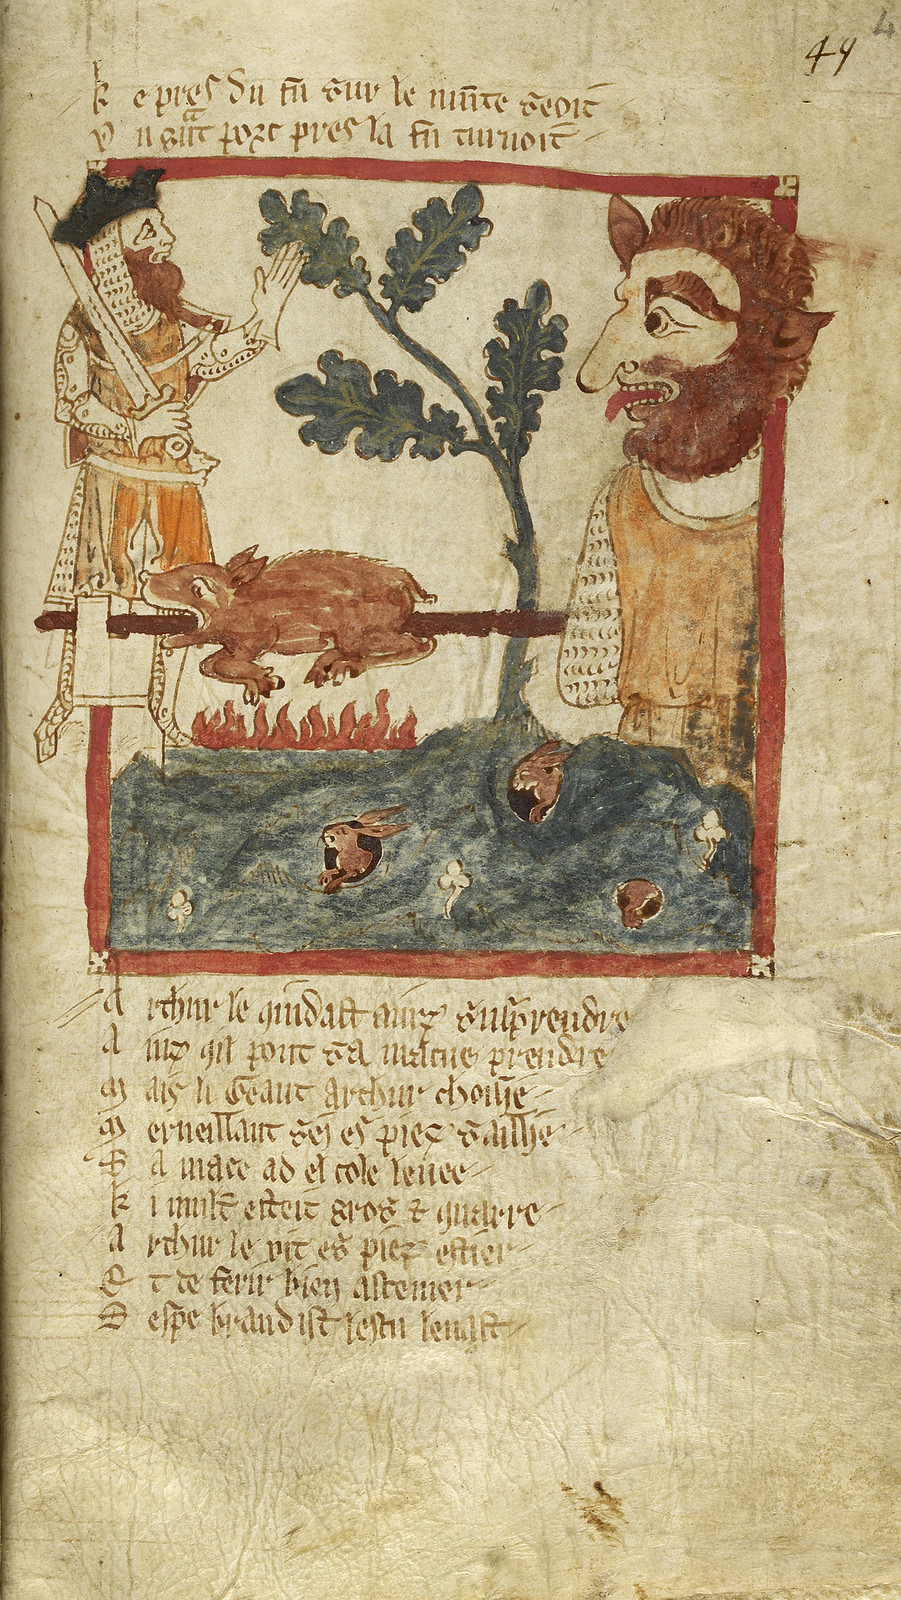 49 4
k e pres du fu sur le munte seoit
v n gat porc pres la fu turnoit
A rthur le quidast auiz surprendre
A inz qil pout sa macue prendre
M ais li Geant arthur choisie
M erueillant sei es piez saillie
S a mace ad el cole leuee
k i mult esteit gros & quarre
A rthur le vit es piez ester
E t de ferir bien
D espe brandist lescu leuast